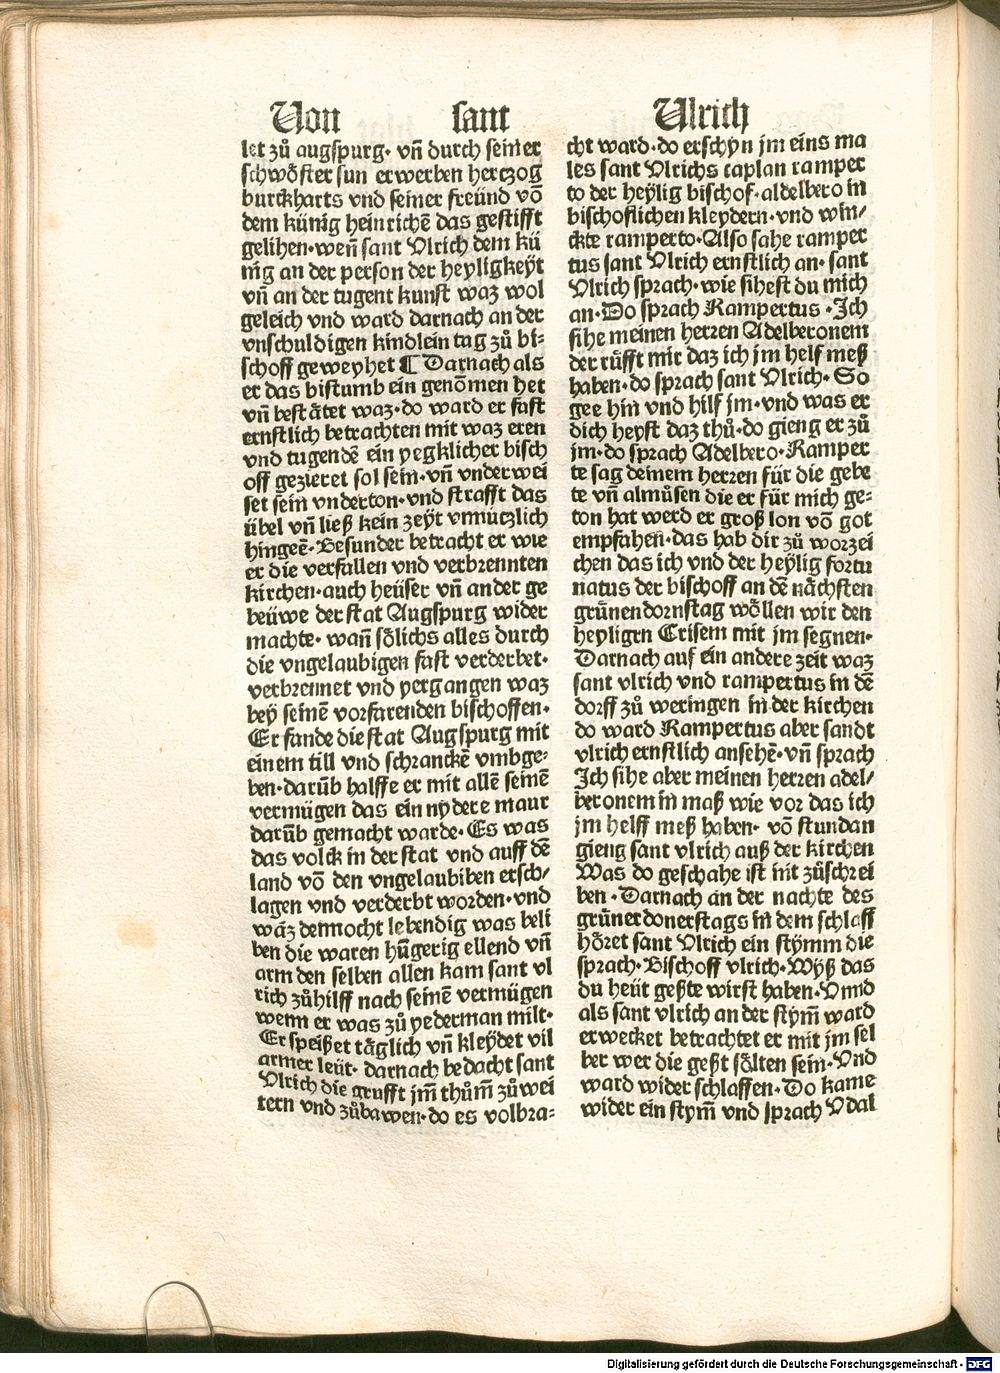 Von sant Ulrich
let zů augspurg· vñ durch seiner
schwöster sun erwerben herczog
burckharts vnd seiner freünd võ
dem künig heinrichẽ das gestifft
gelihen·weñ sant Vlrich dem kü
nig an der person der heyligkeyt
vñ an der tugent kunst waz wol
geleich vnd ward darnach an der
vnschuldigen kindlein tag zů bi⸗
schoff geweyhet ¶ Darnach als
er das bistumb ein genõmen het
vñ bestãtet waz·do ward er fast
ernstlich betrachten mit waz eren
vnd tugendẽ ein yegklicher bisch
off gezieret sol sein·vñ vnderwei
set sein vnderton·vnd strafft das
übel vñ ließ kein zeyt vnnüczlich
hingeẽ·Besunder betracht er wie
er die verfallen vnd verbrennten
kirchen·auch heüser vñ ander ge
beüwe der stat Augspurg wider
machte· wañ sölichs alles durch
die vngelaubigen fast verderbet·
verbrennet vnd vergangen waz
bey seinẽ vorfarenden bischoffen·
Er fande die stat Augspurg mit
einem till vnd schranckẽ vmbge⸗
ben·darũb halffe er mit allẽ seinẽ
vermügen das ein nydere maur
darũb gemacht warde·Es was
das volck in der stat vnd auff dẽ
land võ den vngelaubiben ersch/
lagen vnd verderbt worden·vnd
wãz dennocht lebendig was beli
ben die waren hũgerig ellend vñ
arm den selben allen kam sant vl
rich zůhilff nach seinẽ vermügen
wenn er was zů yederman milt·
Er speißet täglich vñ kleydet vil
armer leüt· darnach bedacht sant
Vlrich die grufft jm̃ thům̃ zůwei
tern vnd zůbawen·do es volbra⸗
cht ward·do erschyn jm eins ma
les sant Vlrichs caplan ramper
to der heylig bischof·aldelbero in
bischoflichen kleydern·vnd win/
ckte ramperto·Also sahe ramper
tus sant Vlrich ernstlich an· sant
Vlrich sprach·wie sihest du mich
an·Do sprach Rampertus ·Ich
sihe meinen herren Adelberonem
der rüfft mir daz ich jm helf meß
haben·do sprach sant Vlrich· So
gee hin vnd hilf jm·vnd was er
dich heyst daz thů·do gieng er zů
jm·do sprach Adelbero·Ramper
te sag deinem herren für die gebe
te vñ almůsen die er für mich ge⸗
ton hat werd er groß lon võ got
empfahen·das hab dir zů worzei
chen das ich vnd der heylig fortu
natus der bischoff an dẽ nächsten
grünendornstag wöllen wir den
heyligen Crisem mit jm segnen·
Darnach auf ein andere zeit waz
sant vlrich vnd rampertus in dẽ
dorff zů weringen in der kirchen
do ward Rampertus aber sandt
vlrich ernstlich ansehẽ·vñ sprach
Ich sihe aber meinen herren adel/
beronem in maß wie vor das ich
jm helff meß haben· võ stundan
gieng sant vlrich auß der kirchen
Was do geschahe ist nit zůschrei
ben ·Darnach an der nachte des
grünerdonerstags in dem schlaff
höret sant Vlrich ein stymm die
sprach·Bischoff vlrich·Wyß das
du heüt geßte wirst haben·Vnnd
als sant vlrich an der stym̃ ward
erwecket betrachtet er mit jm sel
ber wer die geßt sölten sein·Vnd
ward wider schlaffen·Do kame
wider ein stym̃ vnd sprach Vdal
Digitalisierung gefördert durch die Deutsche Forschungsgemeinschaft - DFG